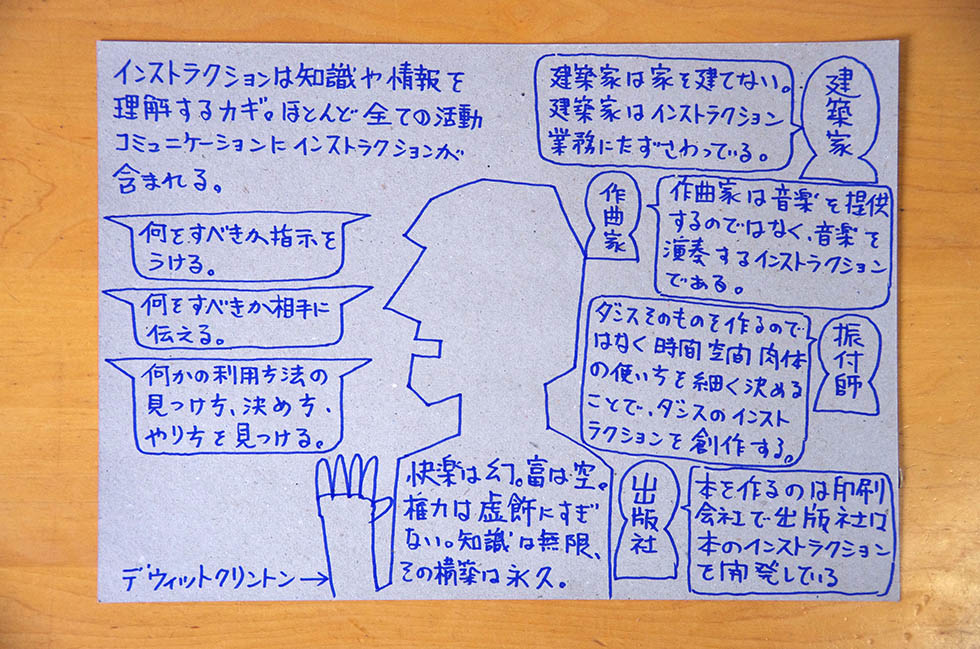 インストラクションは知識や情報を
理解するカギ。ほとんど全ての活動
コミュニケーションにインストラクションが
含まれる。
何をすべきか指示を
うける。
何をすべきか相手に
伝える。
何かの利用方法の
見つけ方、決め方、
やり方を見つける。
デウィットクリントン→
快楽は幻。富は空。
権力は虚飾にすぎ
ない。知識は無限、
その構築は永久。
建築家は家を建てない。
建築家はインストラクション
業務にたずさわっている。
建築家
作曲家
作曲家は音楽を提供
するのではなく、音楽を
演奏するインストラクション
である。
ダンスそのものを作るので
はなく時間空間肉体
の使い方を細く決める
ことで、ダンスのインスト
ラクションを創作する。
振付師
出版社
本を作るのは印刷
会社で出版社は
本のインストラクション
を開発している